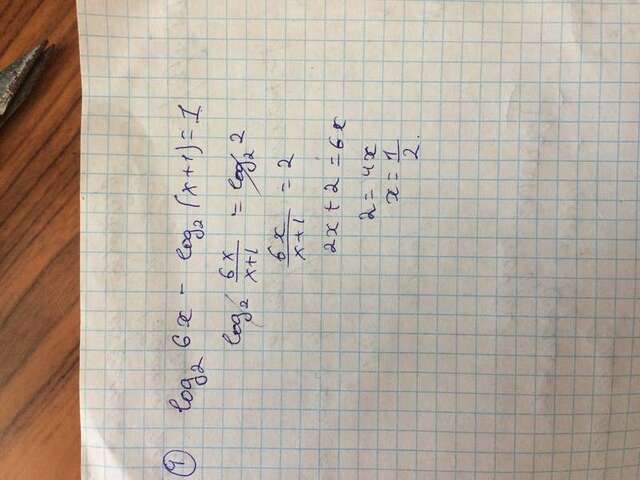 ④ log₂ 6x - log₂ (x+1) = 1
log₂ 6x/x+1 = log₂ 2
6x/x+1 = 2
2x + 2 = 6x
2 = 4x
x = 1/2.